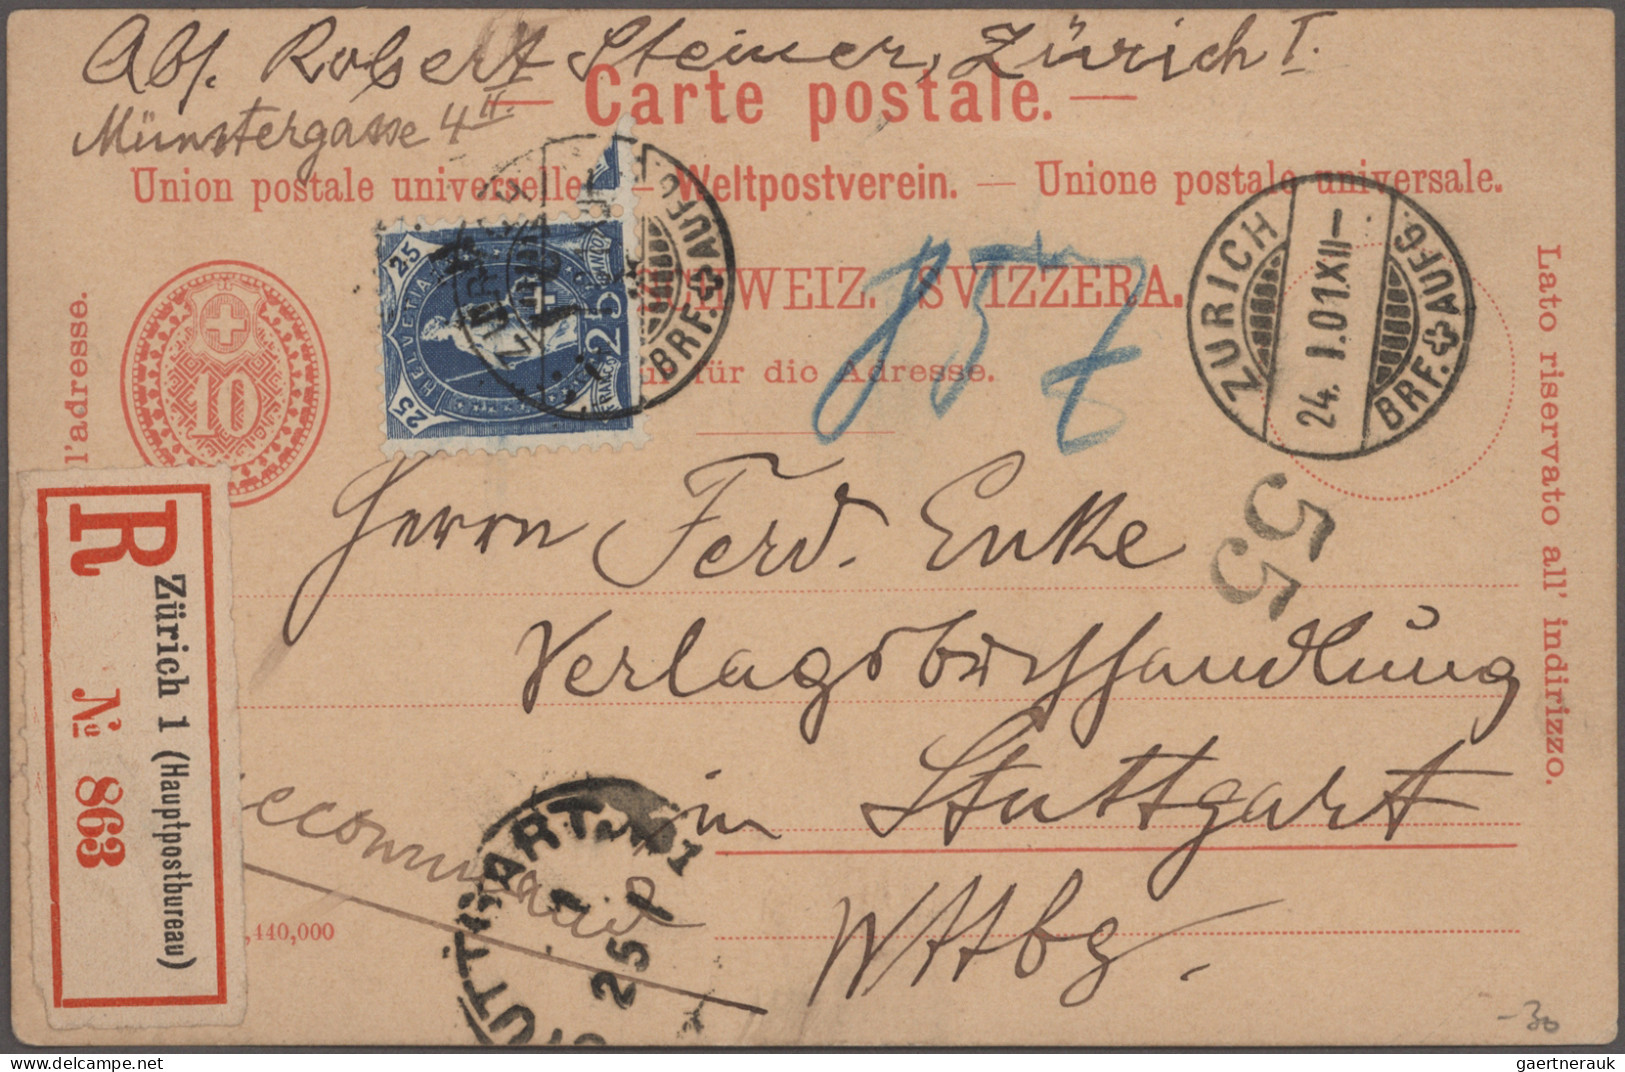 Abs. Robert Steiner, Zürich I.
Münstergasse 4 II.
— Carte postale. —
Union postale universelle. — Weltpostverein. — Unione postale universale.
SCHWEIZ. SVIZZERA.
Nur für die Adresse.
l'adresse.
Lato riservato all' indirizzo.
10
25 25
HELVETIA
FRANCO
25
ZÜRICH
BRF. AUFG.
ZÜRICH
24. I.01.XII–
BRF. AUFG.
157
55
55
Herrn Ferd. Enke
Verlagsbuchhandlung
in Stuttgart
Wttbg.
R
Zürich 1
(Hauptpostbureau)
№ 863
ecommand
STUTTGART
25 1
,440,000
-30
gaertnerauk @ delcampe.net